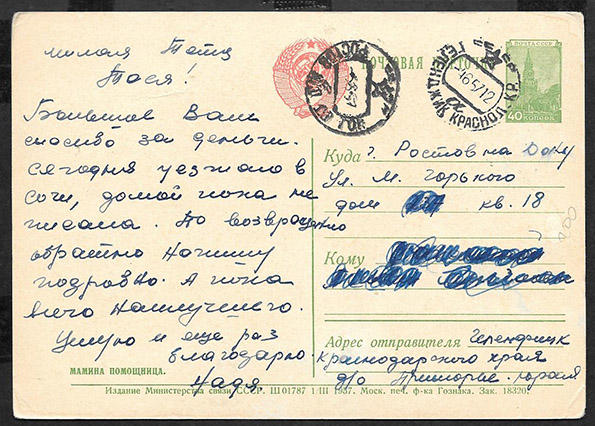 милая Тетя
Тося!
Большое Вам
спасибо за деньги.
Сегодня уезжаю в
Сочи, домой пока не
писала. По возвращению
обратно напишу
подробно. А пока
всего наилучшего.
Целую и еще раз
благодарю.
Надя.
МАМИНА ПОМОЩНИЦА.
ПОЧТОВАЯ
ПОЧТА СССР
40 КОПЕЕК
РОСТОВ
ГЕЛЕНДЖИК КРАСНОД. КР.
Куда г. Ростов на Дону
Ул. М. Горького
дом кв. 18
Кому
Адрес отправителя Геленджик
Краснодарского края
д/о Приморье
Издание Министерства связи СССР. Ш01787 1/III 1957. Моск. печ. ф-ка Гознака. Зак. 18320.